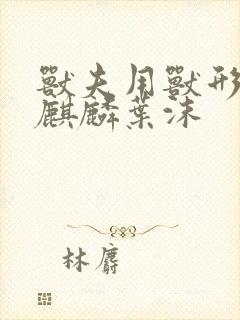 獸夫用獸形
麒麟葉沫
林麝